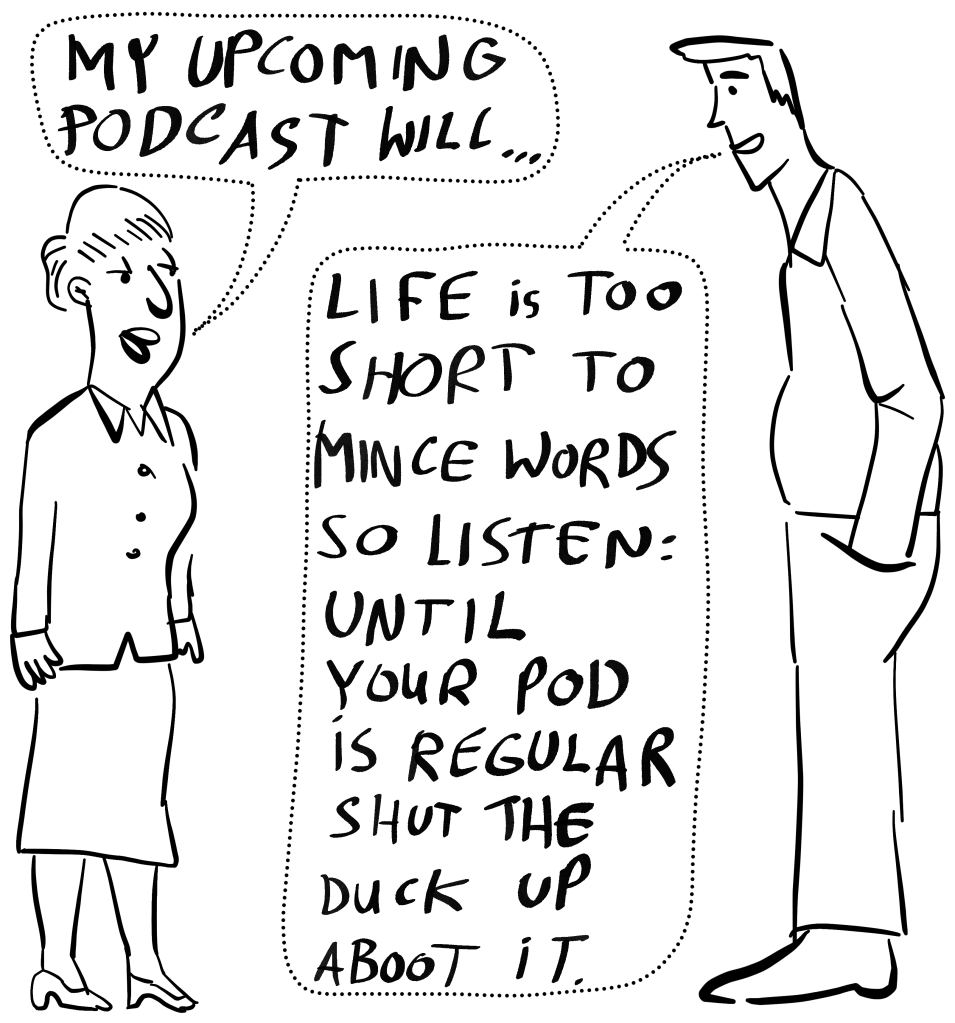 MY UPCOMING
PODCAST WILL...
LIFE is TOO
SHORT TO
MINCE WORDS
SO LISTEN:
UNTIL
YOUR POD
iS REGULAR
SHUT THE
DUCK UP
ABOOT iT.